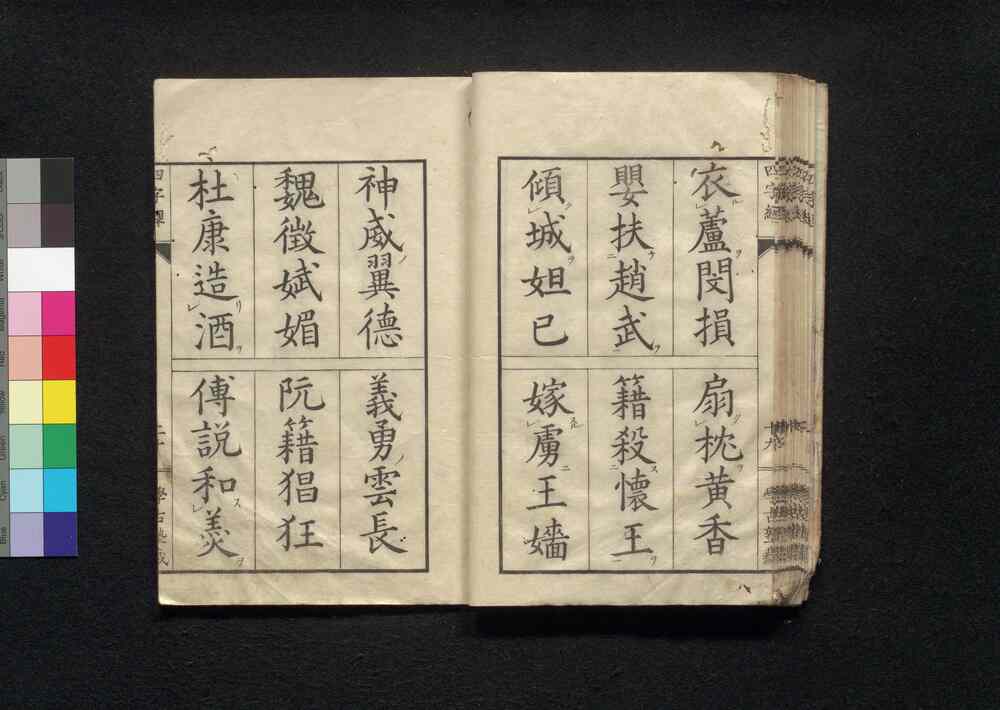 衣蘆閔損
扇枕黄香
嬰扶趙武
籍殺懐王
傾城妲已
嫁虜王嬙
神威翼德
義勇雲長
魏徴娬媚
阮籍猖狂
杜康造酒
傅説和羹